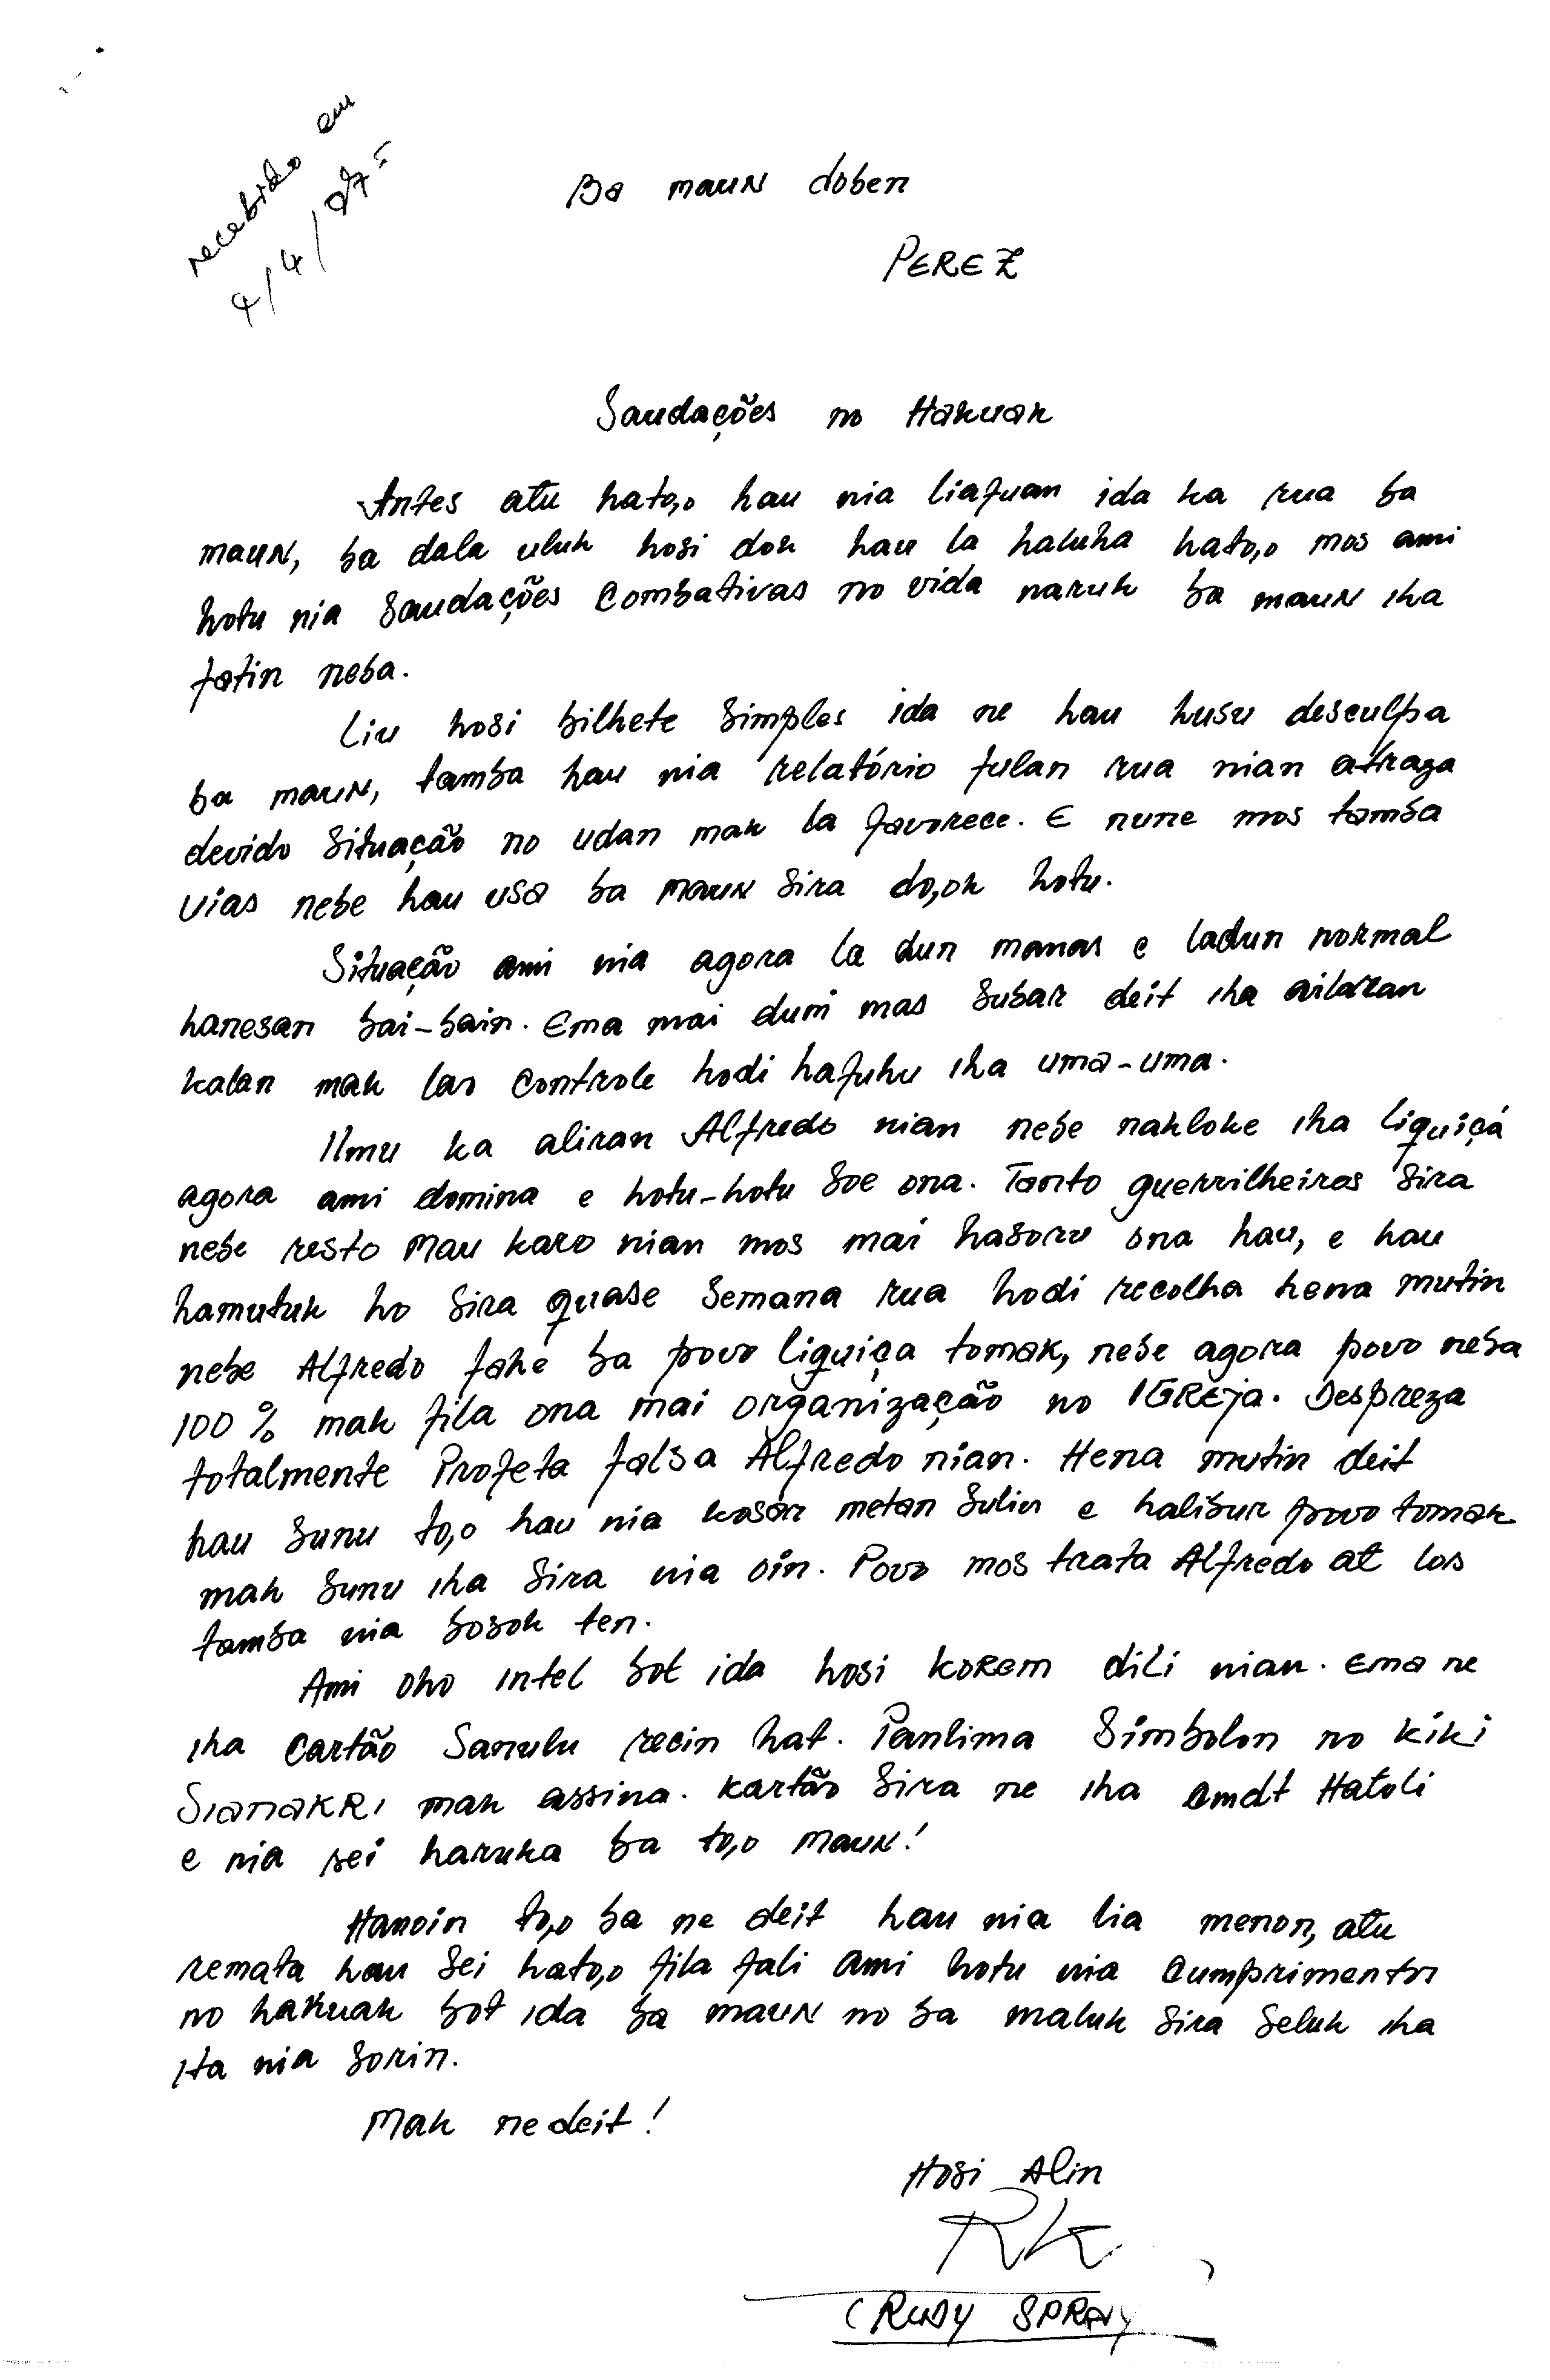 recebido em
9/4/97=
Ba maun doben
PEREZ
Saudações no Hakuak
Antes atu hato,o hau nia liafuan ida ka rua ba
maun, ba dala uluk hosi dok hau la haluha hato,o mos ami
hotu nia Saudações Combativas no vida naruk ba maun iha
fatin neba.
Liu hosi bilhete Simples ida ne hau husu desculpa
ba maun, tamba hau nia relatório fulan rua nian atraza
devido Situação no udan mak la favorece. E nune mos tamba
vias nebe hau usa ba maun Sira do,ok hotu.
Situação ami nia agora la dun manas e ladun normal
hanesan bai-bain. Ema mai duni mas Subar deit iha ailaran
kalan mak lao Controle hodi hafuhu iha uma-uma.
Ilmu ka aliran Alfredo nian nebe nakloke iha Liquiçá
agora ami domina e hotu-hotu Soe ona. Tanto guerrilheiros Sira
nebe resto Mau karo nian mos mai hasoru ona hau, e hau
hamutuk ho Sira quase Semana rua hodi recolha hena mutin
nebe Alfredo fahe ba povo liquiça tomak, nebe agora povo neba
100 % mak fila ona mai organização no IGREja. Despreza
totalmente Profeta falsa Alfredo nian. Hena mutin deit
hau Sunu to,o hau nia kosar metan Sulin e halibur povo tomak
mak Sunu iha Sira nia oin. Povo mos trata Alfredo at los
tamba nia bosok ten.
Ami oho intel bot ida hosi korem dili nian. Ema ne
iha Cartão Sanulu recin hat. Panlima Simbolon no kiki
SianaKRi mak assina. Kartão Sira ne iha Cmdt Hatoli
e nia sei haruka ba to,o maun!
Hanoin to,o ba ne deit hau nia lia menon, atu
remata hau Sei hato,o fila fali ami hotu nia Cumprimentos
no hakuak bot ida ba maun no ba maluk Sira Seluk iha
ita nia Sorin.
Mak ne deit!
Hosi Alin
RK
(RUDY SPRAY